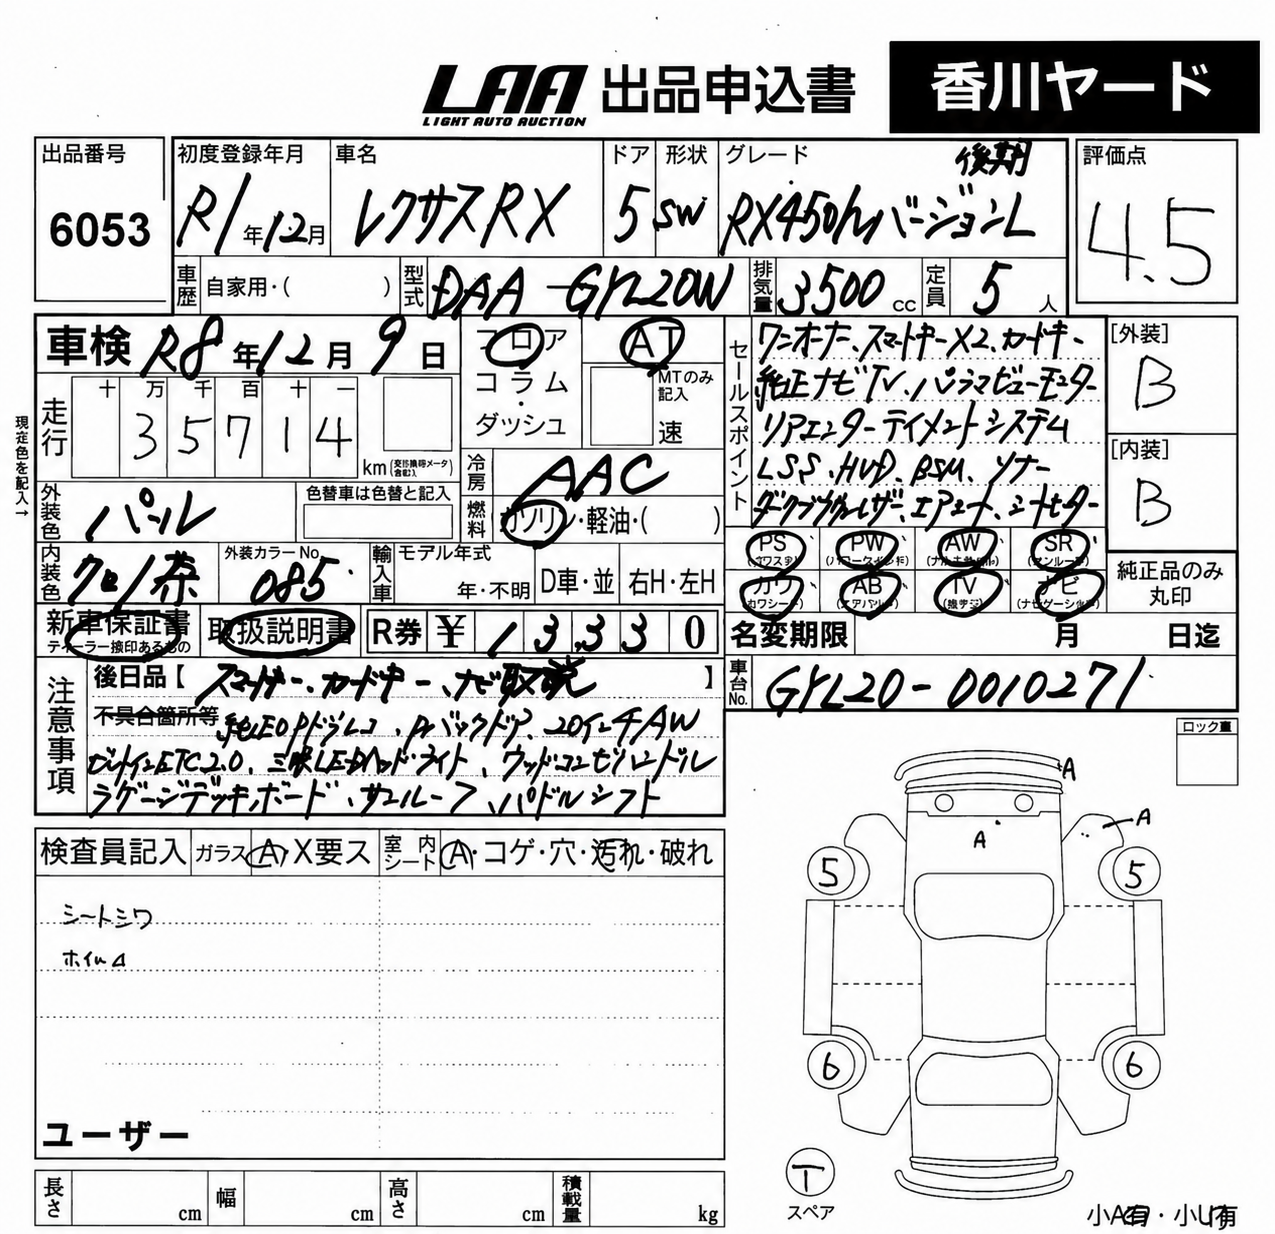 LAA 出品申込書 香川ヤード
LIGHT AUTO AUCTION
出品番号 6053
初度登録年月 R1年12月
車名 レクサスRX
ドア 5
形状 SW
グレード 後期
RX450h バージョンL
評価点 4.5
車歴 自家用・( )
型式 DAA-GYL20W
排気量 3500 cc
定員 5 人
車検 R8年12月9日
フロア
コラム
・
ダッシュ
AT
MTのみ記入
速
セールスポイント
ワンオーナー、スマートキーX2、カードキー
純正ナビTV、パノラマビューモニター
リアエンターテイメントシステム
LSS、HUD、BSM、ソナー
エアシート、シートヒーター
[外装] B
[内装] B
現在色を記入→
走行 十 万 千 百 十 一
35714 km
冷房 AAC
燃料 ガソリン・軽油・( )
外装色 パール
色替車は色替と記入
内装色 クロ/茶
外装カラーNo. 085
輸入車
モデル年式
年・不明
D車・並
右H・左H
PS PW AW SR
カワ AB TV ナビ
(カワシート) (エアバッグ) (ナビゲーション)
純正品のみ
丸印
新車保証書
ディーラー捺印あるもの
取扱説明書
R券 ¥ 13330
名変期限 月 日迄
車台No. GYL20-0010271
注意事項
後日品【スマートキー、カードキー、ナビ取説】
不具合箇所等 純正OPドラレコ、Pwバックドア、20インチAW
ビルトインETC2.0、三眼LEDヘッドライト、ウッドコンビハンドル
ラゲージデッキボード、サンルーフ、パドルシフト
ロック重
検査員記入
ガラス A X要ス
室内シート A・コゲ・穴・汚れ・破れ
シートシワ
ホイルム
ユーザー
A
A
A
5 5
6 6
T
スペア
長さ cm
幅 cm
高さ cm
積載量 kg
小A有・小U有